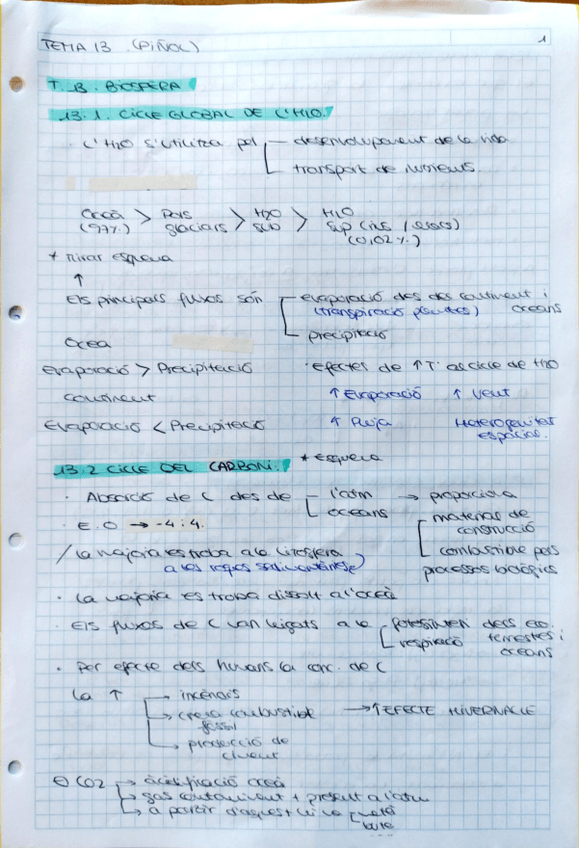 TEMA 13 (PIÑOL) 1
T. 13. BIOSFERA
13.1. CICLE GLOBAL DE L'H2O.
· L'H2O s'utilitza pel desenvolupament de la vida
transport de nutrients.
Oceà > Pols > H2O > H2O
(97%) glacials sub sup (rius, llacs)
(0,02%)
* Mirar esquema
↑
Els principals fluxos són evaporació des des continent i oceans
(transpiració plantes)
precipitació
Oceà
Evaporació > Precipitació
continent
Evaporació < Precipitació
· efectes de ↑T: al cicle de H2O
↑ Evaporació ↑ Vent
↑ Pluja Heterogeneïtat
espacial.
13.2 CICLE DEL CARBONI. * Esquema
· Absorció de C des de l'atm → proporciona
oceans
materias de
construcció
combustible pels
processos biològics
· E.O → -4 : 4.
/ La majoria es troba a la Litosfera
a les roques sedimentàries)
· La majoria es troba dissolt a l'oceà
· Els fluxos de C van lligats a la fotosíntesi dels eco.
respiració terrestres i
oceans
· Per efecte dels humans la conc. de C
ha ↑ → incendis
→ crema combustible
fòssil
→ producció de
ciment
→ ↑ EFECTE HIVERNACLE
CO2 → acidificació oceà
→ gas contaminant + present a l'atm
→ a partir d'aquest